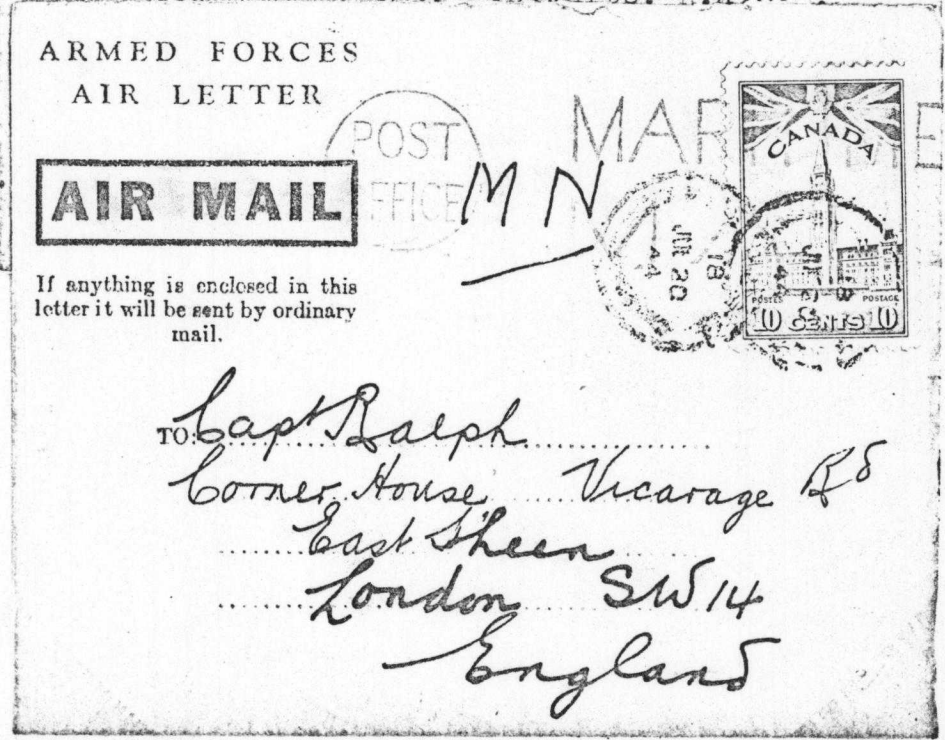 ARMED FORCES
AIR LETTER
POST
OFFICE
M N
AIR MAIL
If anything is enclosed in this
letter it will be sent by ordinary
mail.
CANADA
18
JUN 20
44
POSTES POSTAGE
10 CENTS 10
TO: Capt Ralph
Corner House Vicarage Rd
East Sheen
London SW 14
England